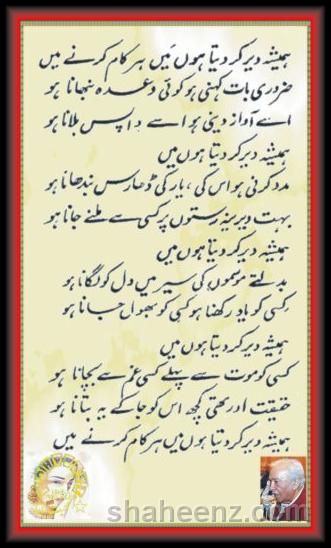 ہمیشہ دیر کر دیتا ہوں مَیں ہر کام کرنے میں
ضروری بات کہنی ہو کوئی وعدہ نبھانا ہو
اسے آواز دینی ہو اسے واپس بلانا ہو
ہمیشہ دیر کر دیتا ہوں میں
مدد کرنی ہو اس کی ، یار کی ڈھارس بندھانا ہو
بہت دیرینہ رستوں پر کسی سے ملنے جانا ہو
ہمیشہ دیر کر دیتا ہوں میں
بدلتے موسموں کی سیر میں دل کو لگانا ہو
کسی کو یاد رکھنا ہو کسی کو بھول جانا ہو
ہمیشہ دیر کر دیتا ہوں میں
کسی کو موت سے پہلے کسی غم سے بچانا ہو
حقیقت اور تھی کچھ اس کو جا کے یہ بتانا ہو
ہمیشہ دیر کر دیتا ہوں میں ہر کام کرنے میں
shaheenz.com